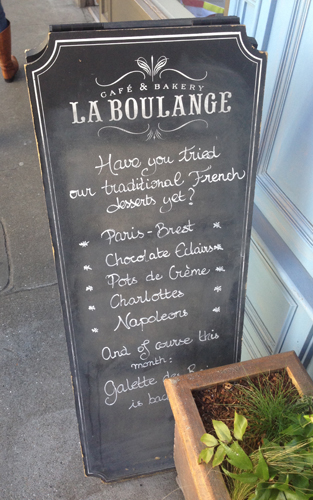 CAFÉ & BAKERY
LA BOULANGE
Have you tried
our traditional French
desserts yet?
Paris-Brest
Chocolate Eclairs
Pots de Crème
Charlottes
Napoleons
And of course this
month:
Galette des
is